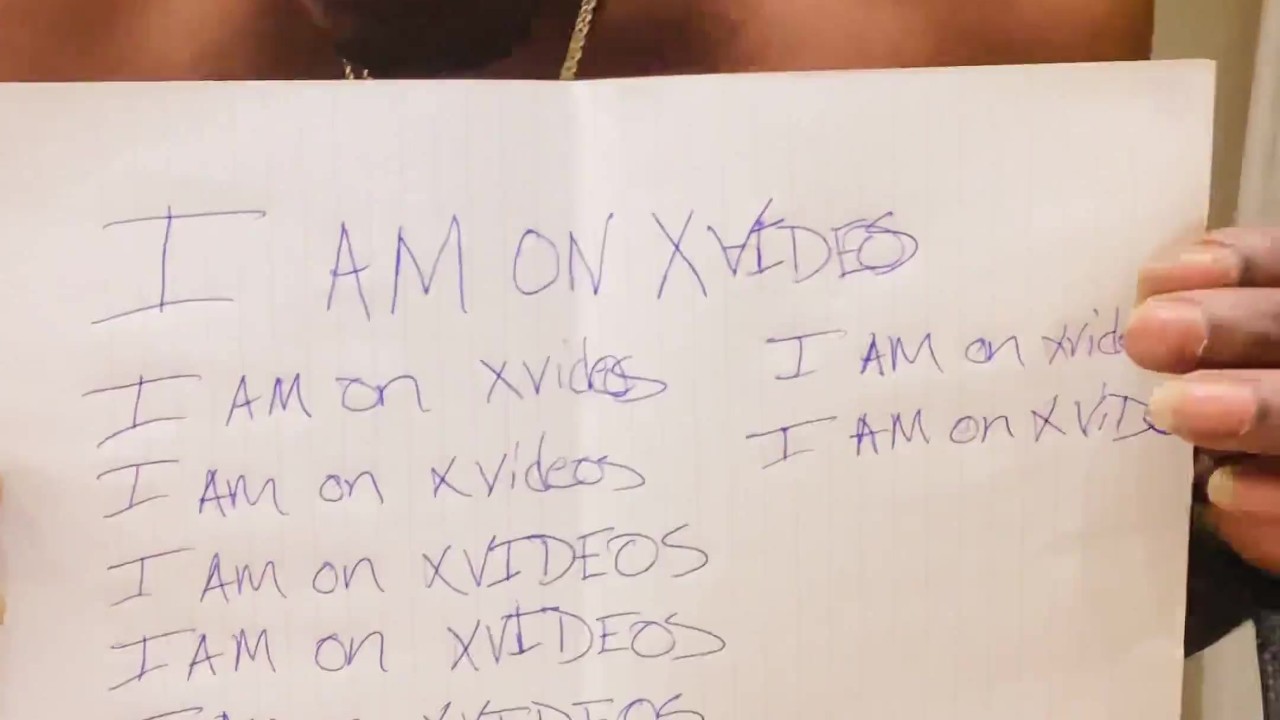 I AM ON XVIDEOS
I AM on xvideos
I AM on xvide
I AM on xvideos
I AM on XViDe
I AM on XVIDEOS
I AM on XVIDEOS
I AM on XVIDEOS